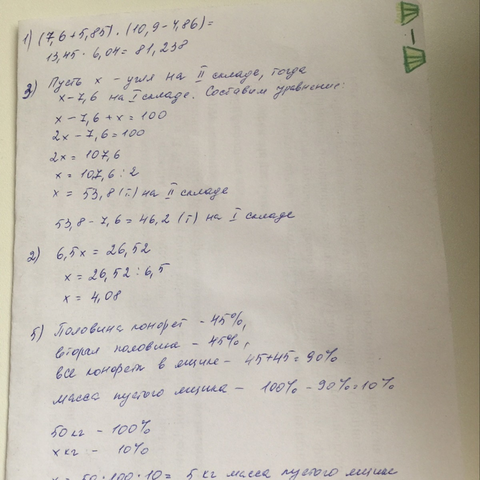 1) (7,6 + 5,85) · (10,9 - 4,86) =
13,45 · 6,04 = 81,238
3) Пусть x - угля на II складе, тогда
x - 7,6 на I складе. Составим уравнение:
x - 7,6 + x = 100
2x - 7,6 = 100
2x = 107,6
x = 107,6 : 2
x = 53,8 (т) на II складе
53,8 - 7,6 = 46,2 (т) на I складе
2) 6,5x = 26,52
x = 26,52 : 6,5
x = 4,08
5) Половина конфет - 45%,
вторая половина - 45%,
все конфеты в ящике - 45+45 = 90%
масса пустого ящика - 100% - 90% = 10%
50 кг - 100%
x кг - 10%
x = 50 : 100 · 10 = 5 кг масса пустого ящика